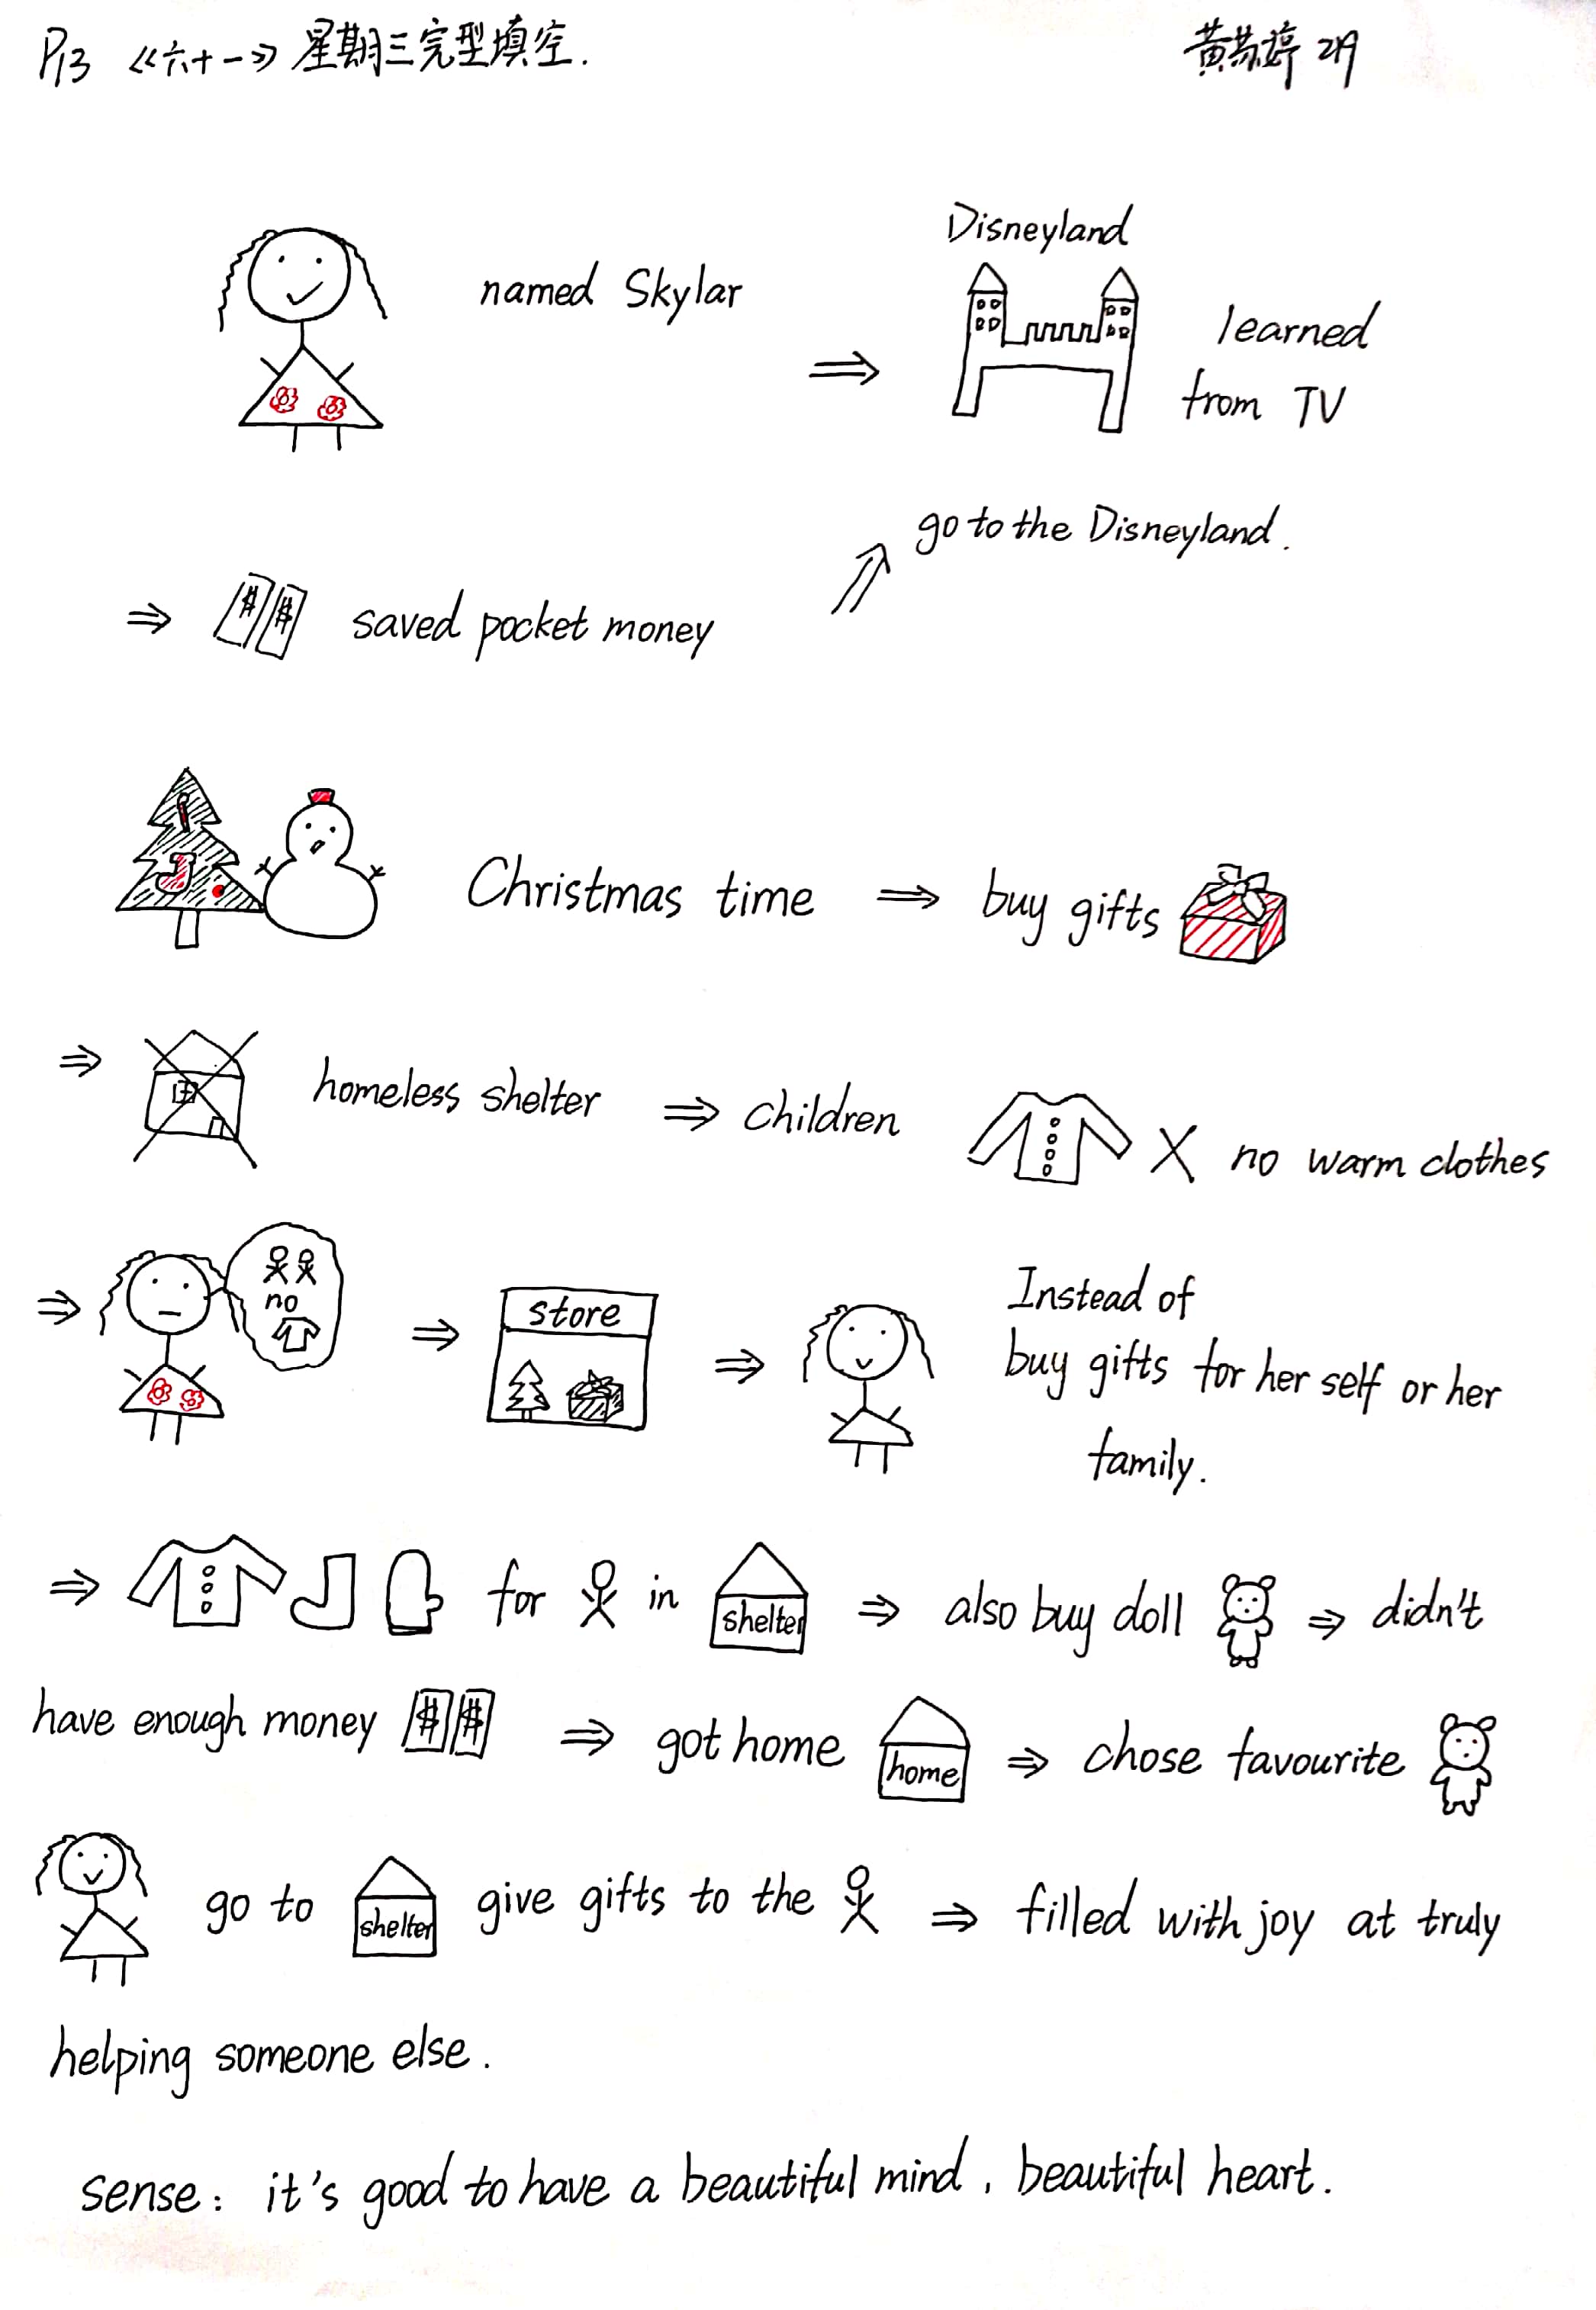 P13 《六十一》星期三完型填空. 黄 婷 219
Disneyland
named Skylar
learned
from TV
go to the Disneyland.
$ $ saved pocket money
Christmas time ⇒ buy gifts
⇒ homeless shelter ⇒ children X no warm clothes
no
store
Instead of
buy gifts for her self or her
family.
⇒ for in shelter ⇒ also buy doll ⇒ didn't
have enough money $ $ ⇒ got home home ⇒ chose favourite
go to shelter give gifts to the ⇒ filled with joy at truly
helping someone else.
sense: it's good to have a beautiful mind, beautiful heart.